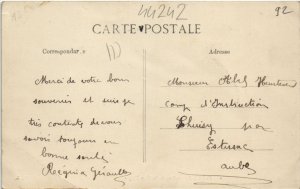 44242
92
CARTE POSTALE
Correspondance
Adresse
Merci de votre bon
souvenir et suis je
très contente de vous
savoir toujours en
bonne santé
Monsieur Abel
camp d'Instruction
par
Estissac
aube